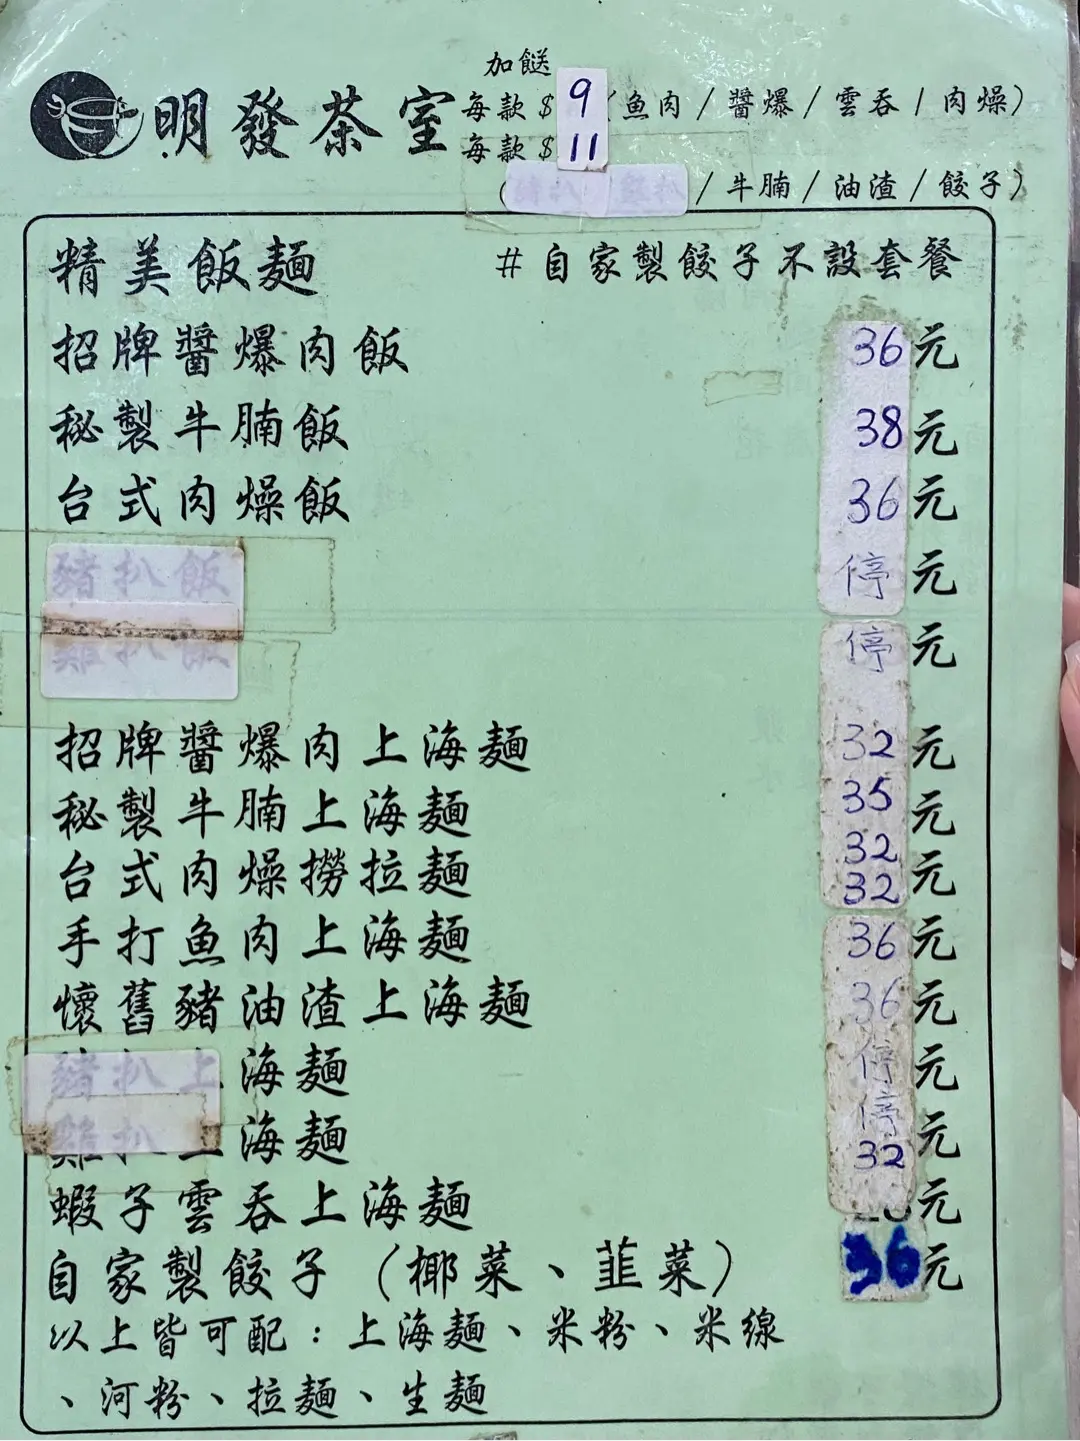 加餸
明發茶室
每款$9（魚肉/醬爆/雲吞/肉燥）
每款$11
（豬扒/雞扒/牛腩/油渣/餃子）
精美飯麵 #自家製餃子不設套餐
招牌醬爆肉飯 36元
秘製牛腩飯 38元
台式肉燥飯 36元
豬扒飯 停元
雞扒飯 停元
招牌醬爆肉上海麵 32元
秘製牛腩上海麵 35元
台式肉燥撈拉麵 32元
手打魚肉上海麵 32
36元
懷舊豬油渣上海麵 36元
豬扒上海麵 停元
雞扒上海麵 停元
蝦子雲吞上海麵 32元
自家製餃子（椰菜、韮菜） 36元
以上皆可配：上海麵、米粉、米線
、河粉、拉麵、生麵